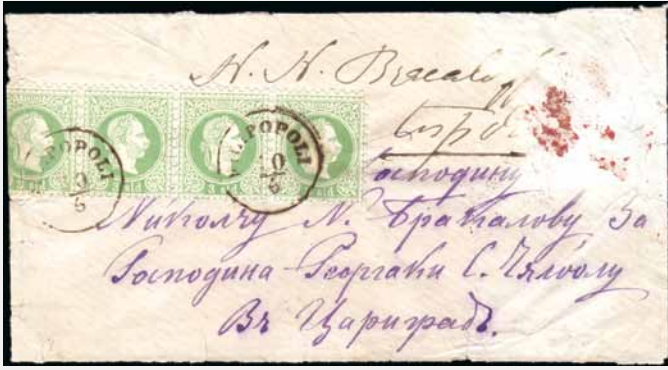 N. N.
POPOLI
10/5
LIPOPOLI
10/5
Господину
Николчу Н. Бракалову За
Господина Георгаки С. Чялоолу
Въ Цариградъ.